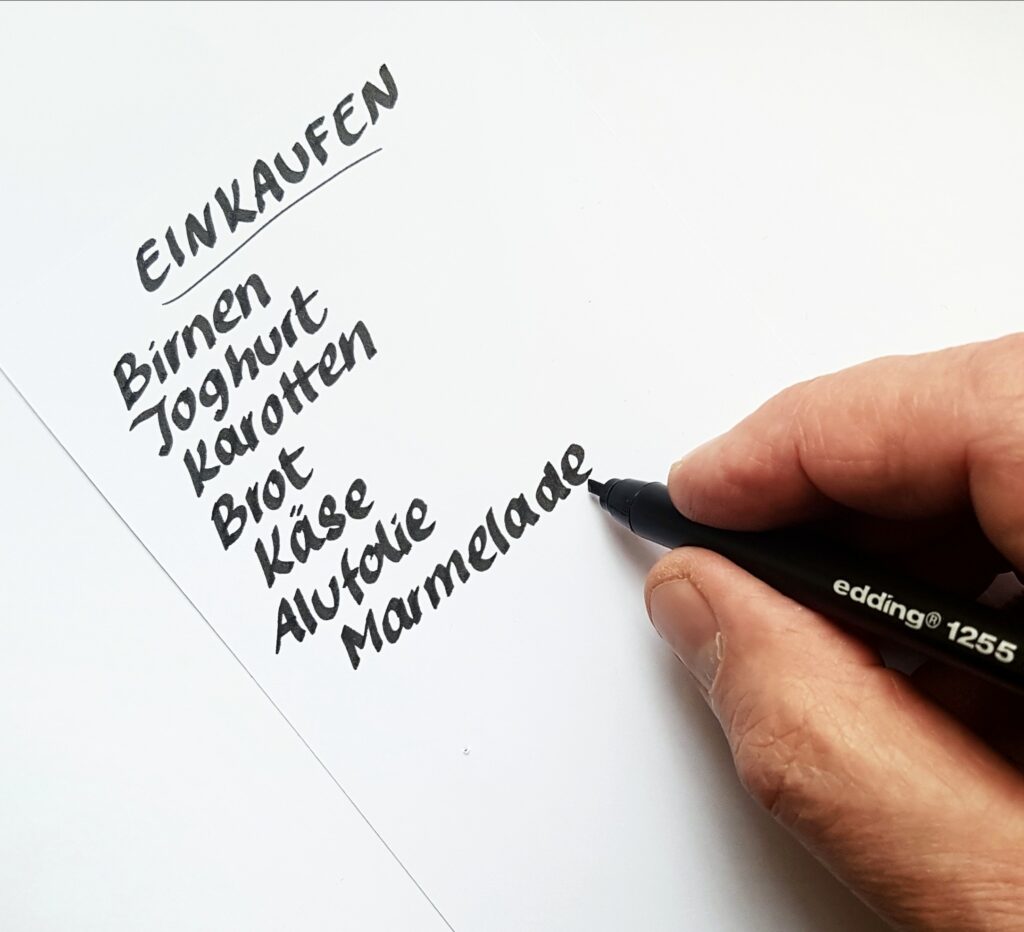 EINKAUFEN
Birnen
Joghurt
Karotten
Brot
Käse
Alufolie
Marmelade
edding® 1255